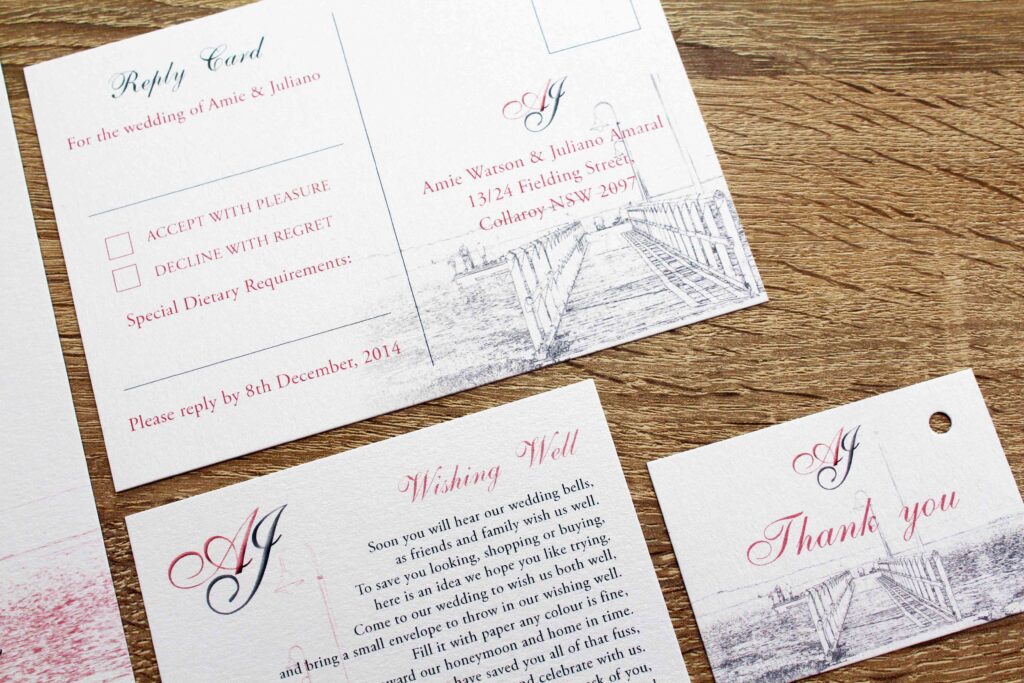 Reply Card
For the wedding of Amie & Juliano
ACCEPT WITH PLEASURE
DECLINE WITH REGRET
Special Dietary Requirements:
Please reply by 8th December, 2014
AJ
Amie Watson & Juliano Amaral
13/24 Fielding Street,
Collaroy NSW 2097
AJ
Wishing Well
Soon you will hear our wedding bells,
as friends and family wish us well.
To save you looking, shopping or buying,
here is an idea we hope you like trying.
Come to our wedding to wish us both well,
and bring a small envelope to throw in our wishing well.
Fill it with paper any colour is fine,
our honeymoon and home in time.
have saved you all of that fuss,
and celebrate with us.
of you,
AJ
Thank you